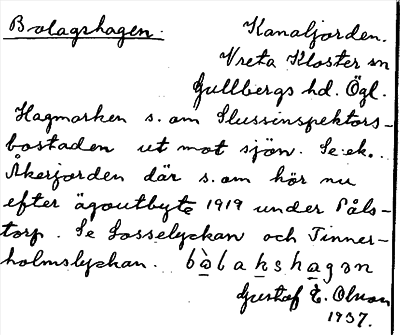 Bolagshagen.
Kanaljorden.
Vreta Kloster sn
Gullbergs hd. Ögl.
Hagmarken s. om Slussinspektors-
bostaden ut mot sjön. Se ek..
Åkerjorden där s. om hör nu
efter ägoutbyte 1919 under Påls-
torp. Se Sosselyckan och Tinner-
holmslyckan. bòlakshagən
Gustaf E. Olson
1937.